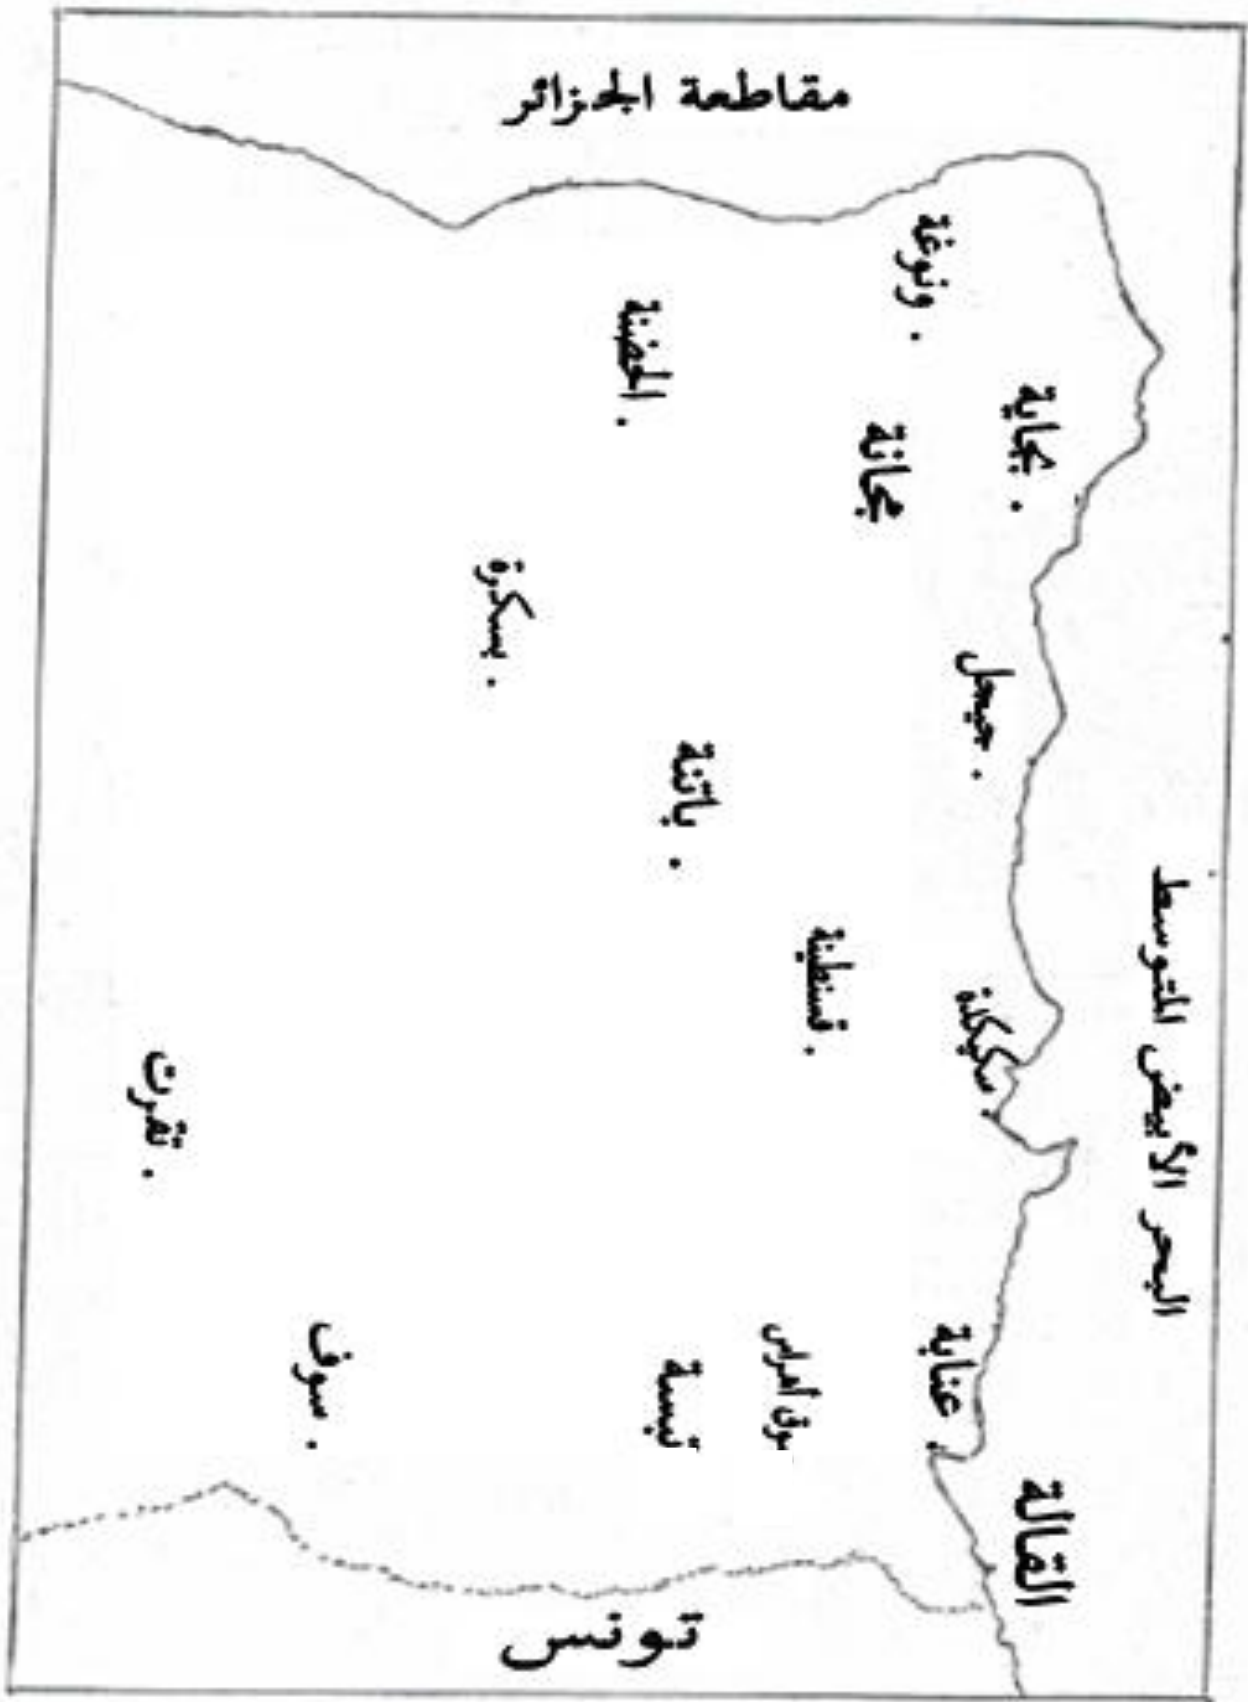 مقاطعة الجزائر
البحر الأبيض المتوسط
ونوغة
بجاية
مجانة
الحضنة
بسكرة
جيجل
باتنة
قسنطينة
سكيكدة
تقرت
سوف
تبسة
سوق أهراس
عنابة
القالة
تونس